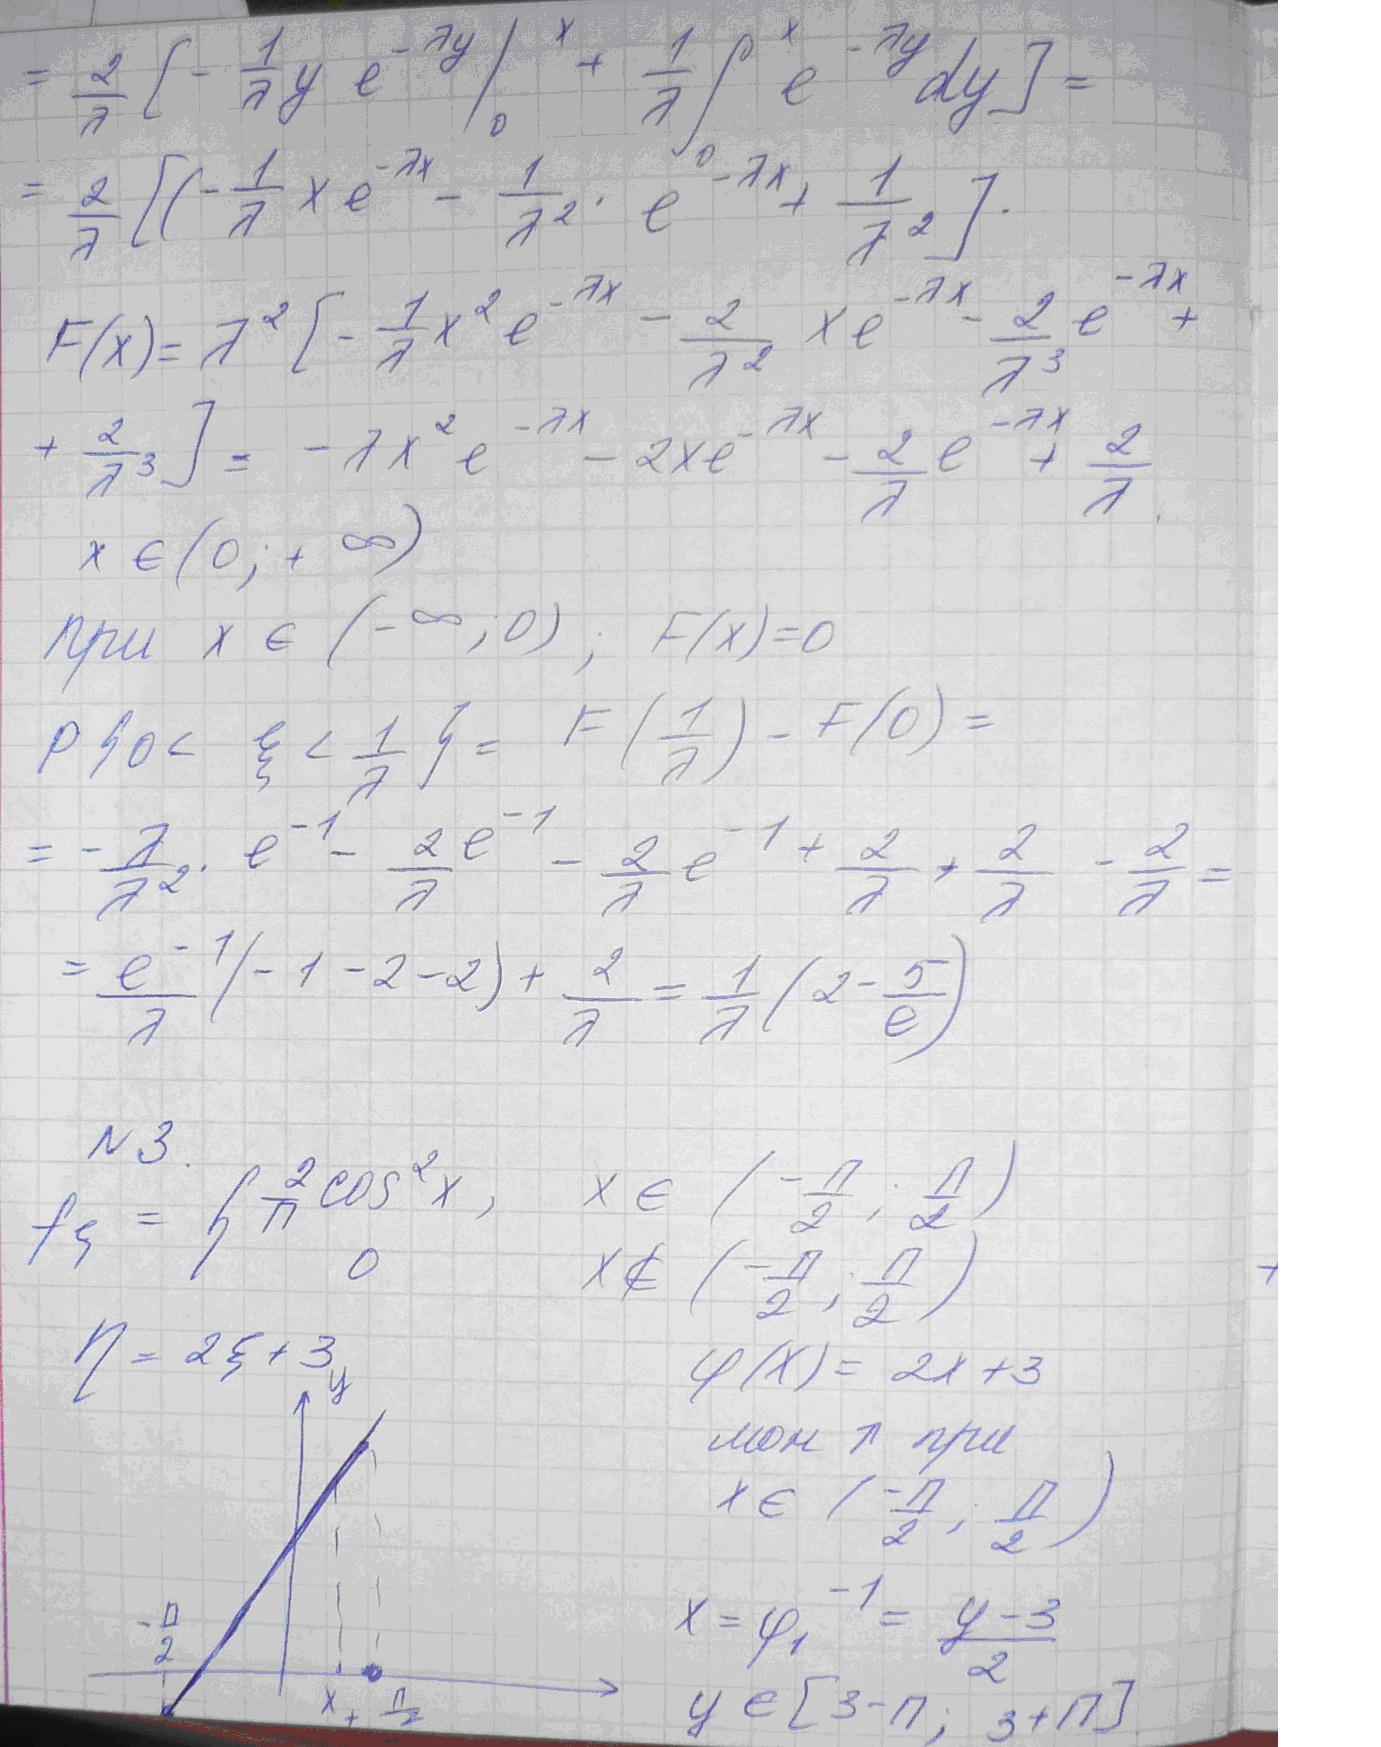 = 2/λ [ - 1/λ y e^{-λy} |_0^x + 1/λ ∫_0^x e^{-λy} dy ] =
= 2/λ [ (- 1/λ x e^{-λx} - 1/λ^2 · e^{-λx} + 1/λ^2 ] .
F(x) = λ^2 [ - 1/λ x^2 e^{-λx} - 2/λ^2 x e^{-λx} - 2/λ^3 e^{-λx} +
+ 2/λ^3 ] = - λ x^2 e^{-λx} - 2x e^{-λx} - 2/λ e^{-λx} + 2/λ .
x ∈ (0; + ∞)
при x ∈ (-∞; 0) ; F(x) = 0
P { 0 < ξ < 1/λ } = F(1/λ) - F(0) =
= - λ/λ^2 · e^{-1} - 2/λ e^{-1} - 2/λ e^{-1} + 2/λ + 2/λ - 2/λ =
= e^{-1}/λ (-1 - 2 - 2) + 2/λ = 1/λ (2 - 5/e)
N3.
f_ξ = { 2/π cos^2 x, x ∈ (-π/2 ; π/2)
0 x ∉ (-π/2 ; π/2)
η = 2ξ + 3
φ(x) = 2x + 3
мон ↑ при
x ∈ (-π/2 ; π/2)
x = φ_1^{-1} = (y - 3)/2
y ∈ [3 - π; 3 + π].
y
-π/2
x
π/2